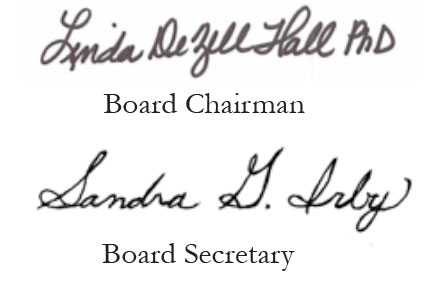 Linda DeZell Hall PhD
Board Chairman
Sandra G. Irby
Board Secretary